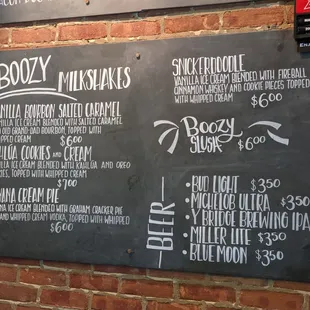 BOOZY MILKSHAKES
ANILLA BOURBON SALTED CARAMEL
LA ICE CREAM BLENDED WITH SALTED CARAMEL
OLD GRAND-DAD BOURBON, TOPPED WITH
PED CREAM $6.00
AHLÚA COOKIES AND CREAM
ILLA ICE CREAM BLENDED WITH KAHLÚA AND OREO
IES, TOPPED WITH WHIPPED CREAM
$7.00
ANA CREAM PIE
NA ICE CREAM BLENDED WITH GRAHAM CRACKER PIE
AND WHIPPED CREAM VODKA, TOPPED WITH WHIPPED
$6.00
SNICKERDOODLE
VANILLA ICE CREAM BLENDED WITH FIREBALL
CINNAMON WHISKEY AND COOKIE PIECES TOPPED
WITH WHIPPED CREAM
$6.00
BOOZY
SLUSH $6.00
BEER
• BUD LIGHT $3.50
• MICHELOB ULTRA $3.50
• Y BRIDGE BREWING IPA
• MILLER LITE $3.50
• BLUE MOON $3.50